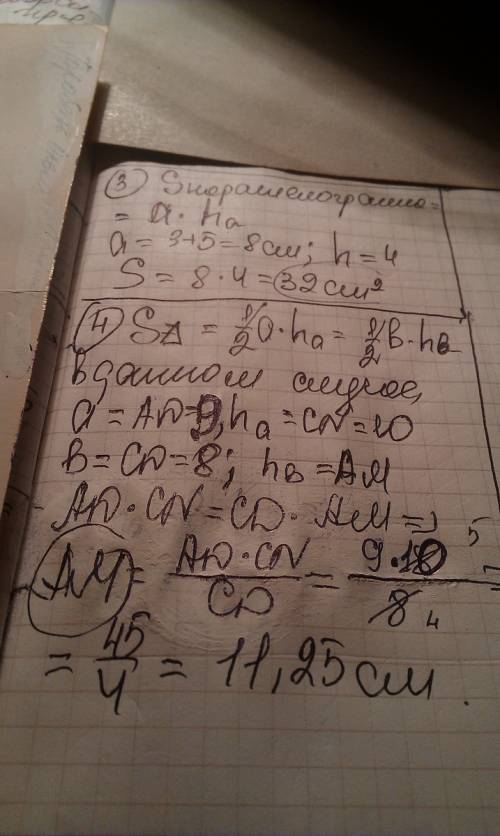 ③ Sпараллелограмма =
= a · ha
a = 3+5 = 8 см; h = 4
S = 8 · 4 = 32 см²
④ S△ = 1/2 a · ha = 1/2 b · hb
В данном случае,
a = AD = 9, ha = CN = 10
b = CD = 8; hb = AM
AD · CN = CD · AM ⇒
AM = AD · CN / CD = 9 · 10 5 / 8 4 =
= 45/4 = 11,25 см.